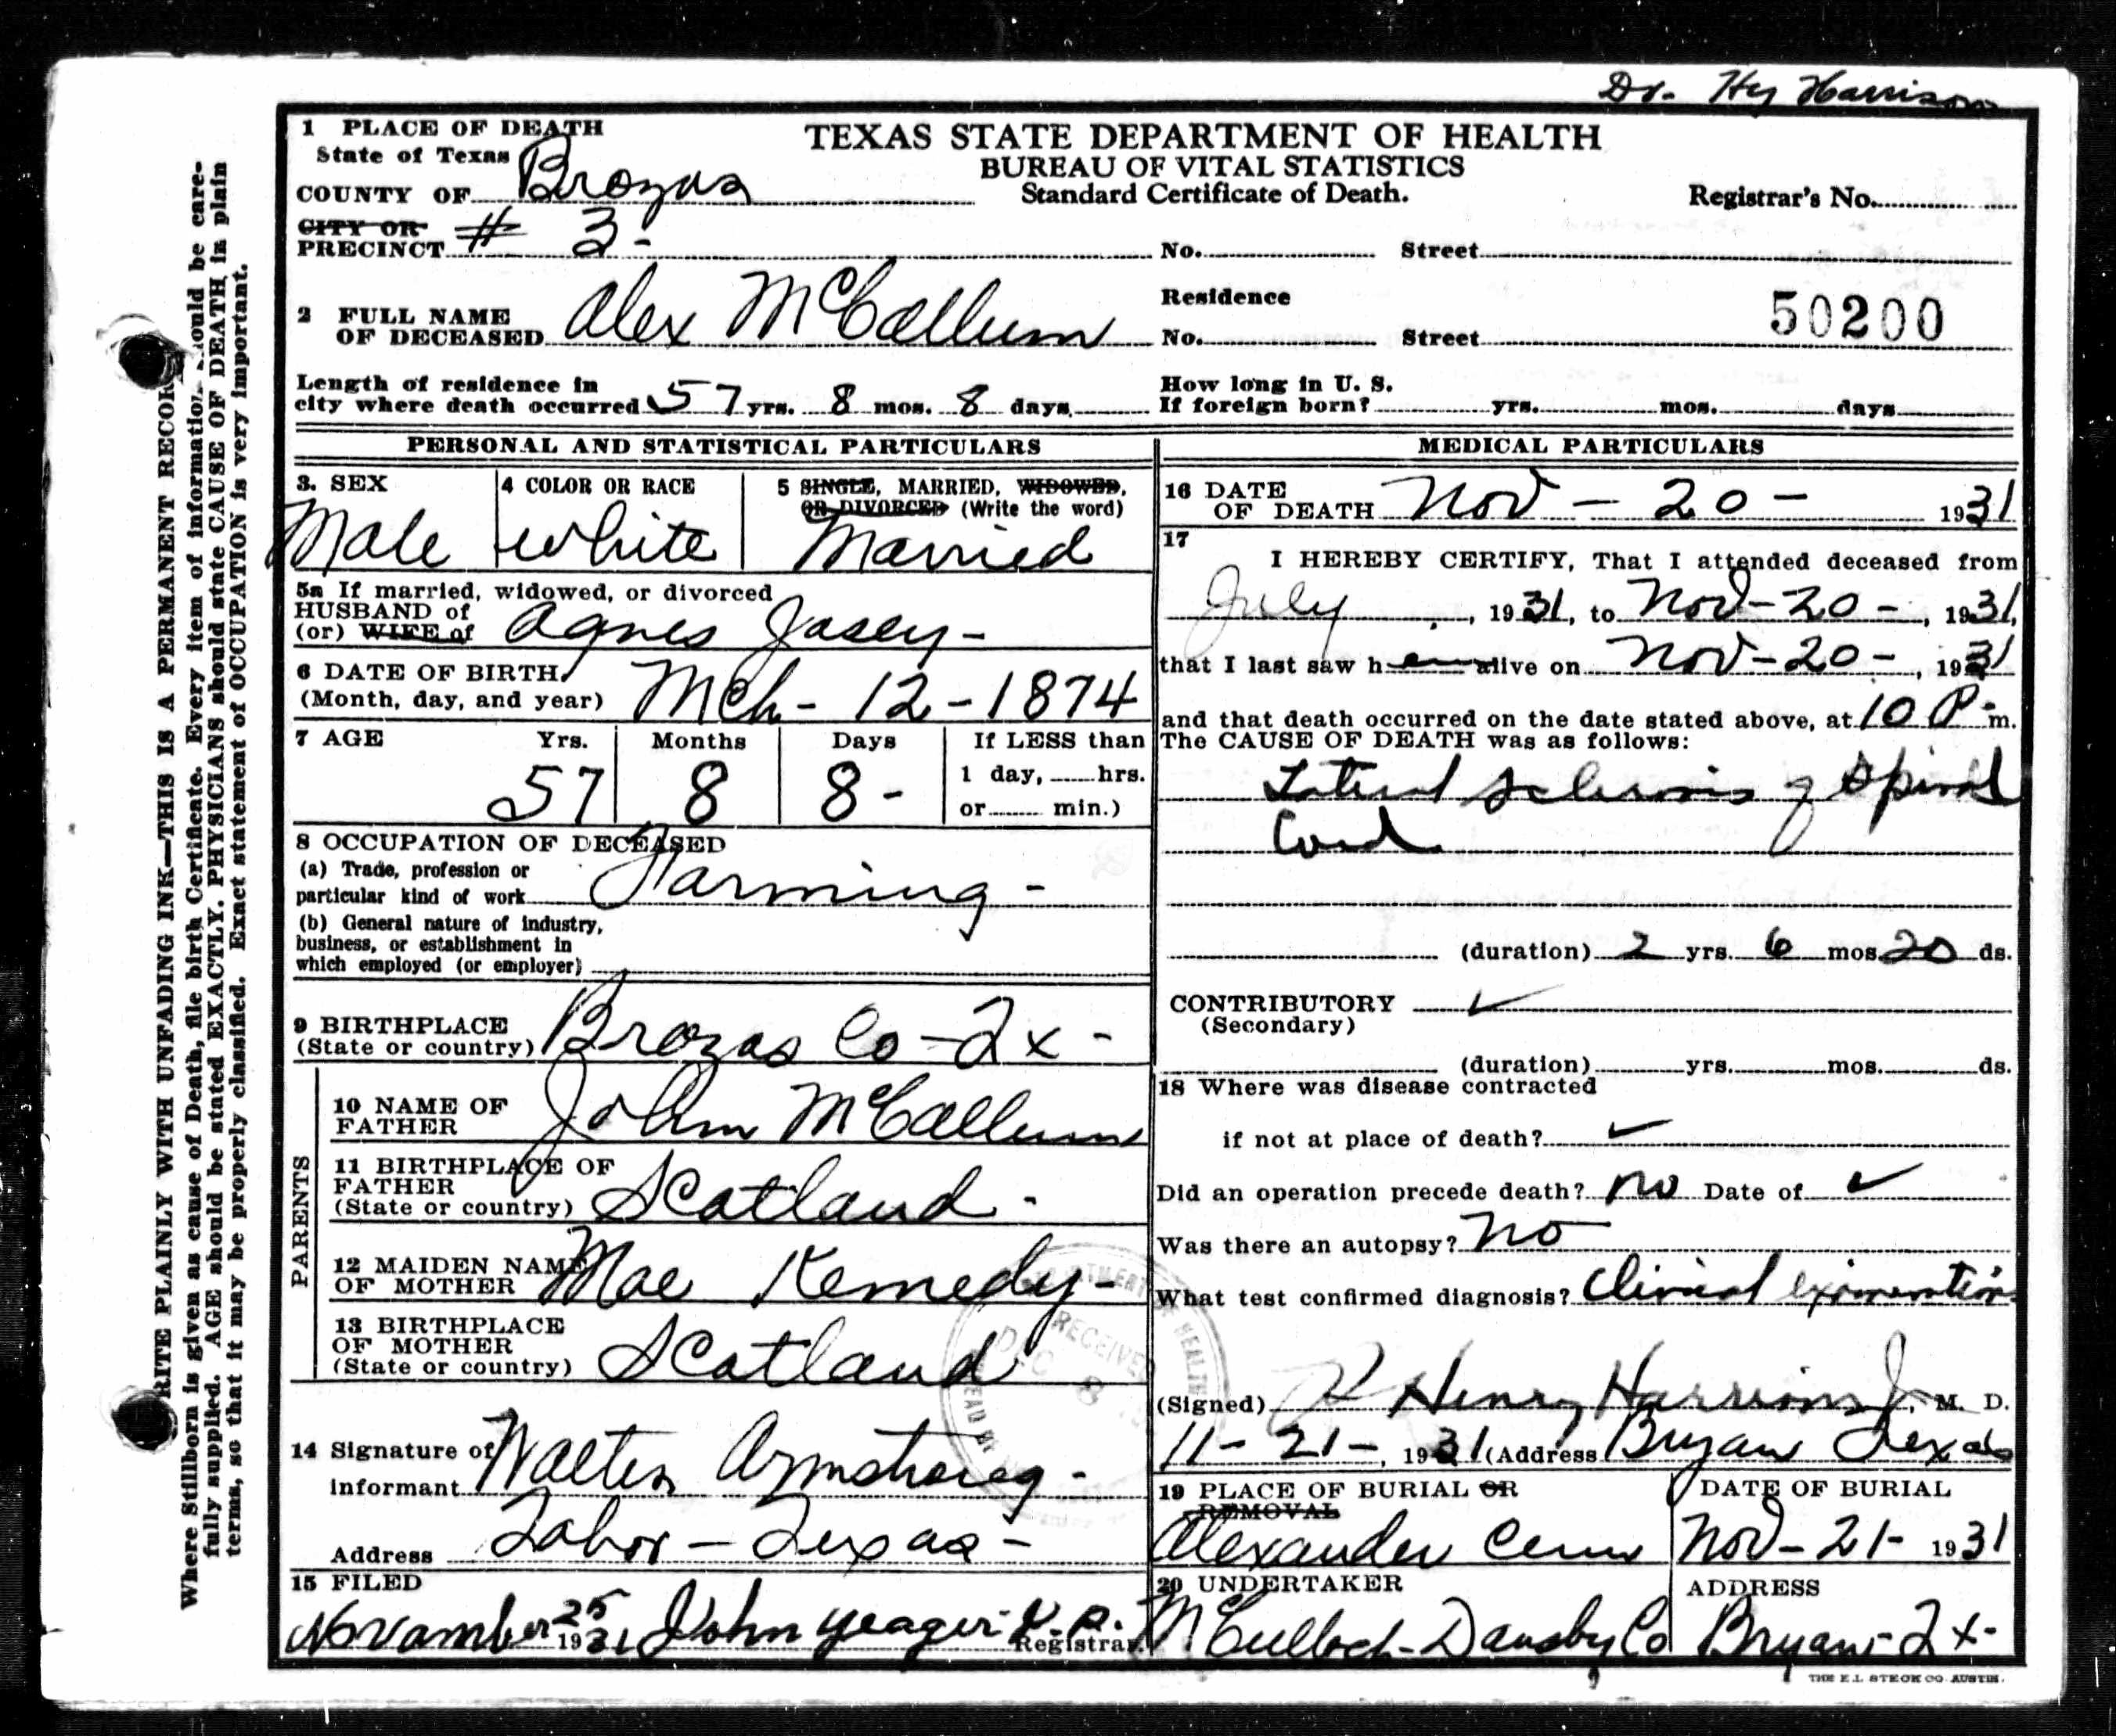 Dr. Hy Harrison
1 PLACE OF DEATH
State of Texas
COUNTY OF Brozas
CITY OR
PRECINCT # 3-
TEXAS STATE DEPARTMENT OF HEALTH
BUREAU OF VITAL STATISTICS
Standard Certificate of Death.
Registrar's No.
No. Street
2 FULL NAME
OF DECEASED Alex McCallum
Residence
No. Street
50200
Length of residence in
city where death occurred 57 yrs. 8 mos. 8 days
How long in U. S.
If foreign born? yrs. mos. days
PERSONAL AND STATISTICAL PARTICULARS
3. SEX
Male
4 COLOR OR RACE
White
5 SINGLE, MARRIED, WIDOWED,
OR DIVORCED (Write the word)
Married
5a If married, widowed, or divorced
HUSBAND of
(or) WIFE of Agnes Jasey-
6 DATE OF BIRTH
(Month, day, and year) Mch- 12-1874
7 AGE Yrs. Months Days If LESS than
1 day, hrs.
or min.)
57 8 8-
8 OCCUPATION OF DECEASED
(a) Trade, profession or
particular kind of work Farming-
(b) General nature of industry,
business, or establishment in
which employed (or employer)
9 BIRTHPLACE
(State or country) Brozas Co-Tx-
PARENTS
10 NAME OF
FATHER John McCallum
11 BIRTHPLACE OF
FATHER
(State or country) Scotland-
12 MAIDEN NAME
OF MOTHER Mae Kemedy-
13 BIRTHPLACE
OF MOTHER
(State or country) Scotland
14 Signature of
informant Walter Armstrong-
Address Tabor-Texas-
15 FILED
November 25 1931 John Yeager Registrar
MEDICAL PARTICULARS
16 DATE
OF DEATH Nov-20- 1931
17
I HEREBY CERTIFY, That I attended deceased from
July, 1931, to Nov-20-, 1931,
that I last saw h alive on Nov-20-, 1931
and that death occurred on the date stated above, at 10 P.m.
The CAUSE OF DEATH was as follows:
Lateral Sclerosis of Spinal
Cord
(duration) 2 yrs. 6 mos. 20 ds.
CONTRIBUTORY ✓
(Secondary)
(duration) yrs. mos. ds.
18 Where was disease contracted
if not at place of death? ✓
Did an operation precede death? no Date of ✓
Was there an autopsy? No
What test confirmed diagnosis? Clinical examination
(Signed) Henry Harrison Jr, M. D.
11-21-, 1931 (Address Bryan Texas
19 PLACE OF BURIAL OR
REMOVAL
Alexander Cem
DATE OF BURIAL
Nov-21- 1931
20 UNDERTAKER
McCulloch-Dansby Co
ADDRESS
Bryan-Tx-
THE E.L. STECK CO. AUSTIN.
RECEIVED
DEC 8
HEALTH
RITE PLAINLY WITH UNFADING INK—THIS IS A PERMANENT RECOR
Where Stillborn is given as cause of Death, file birth Certificate. Every item of information should be care-
fully supplied. AGE should be stated EXACTLY. PHYSICIANS should state CAUSE OF DEATH in plain
terms, so that it may be properly classified. Exact statement of OCCUPATION is very important.